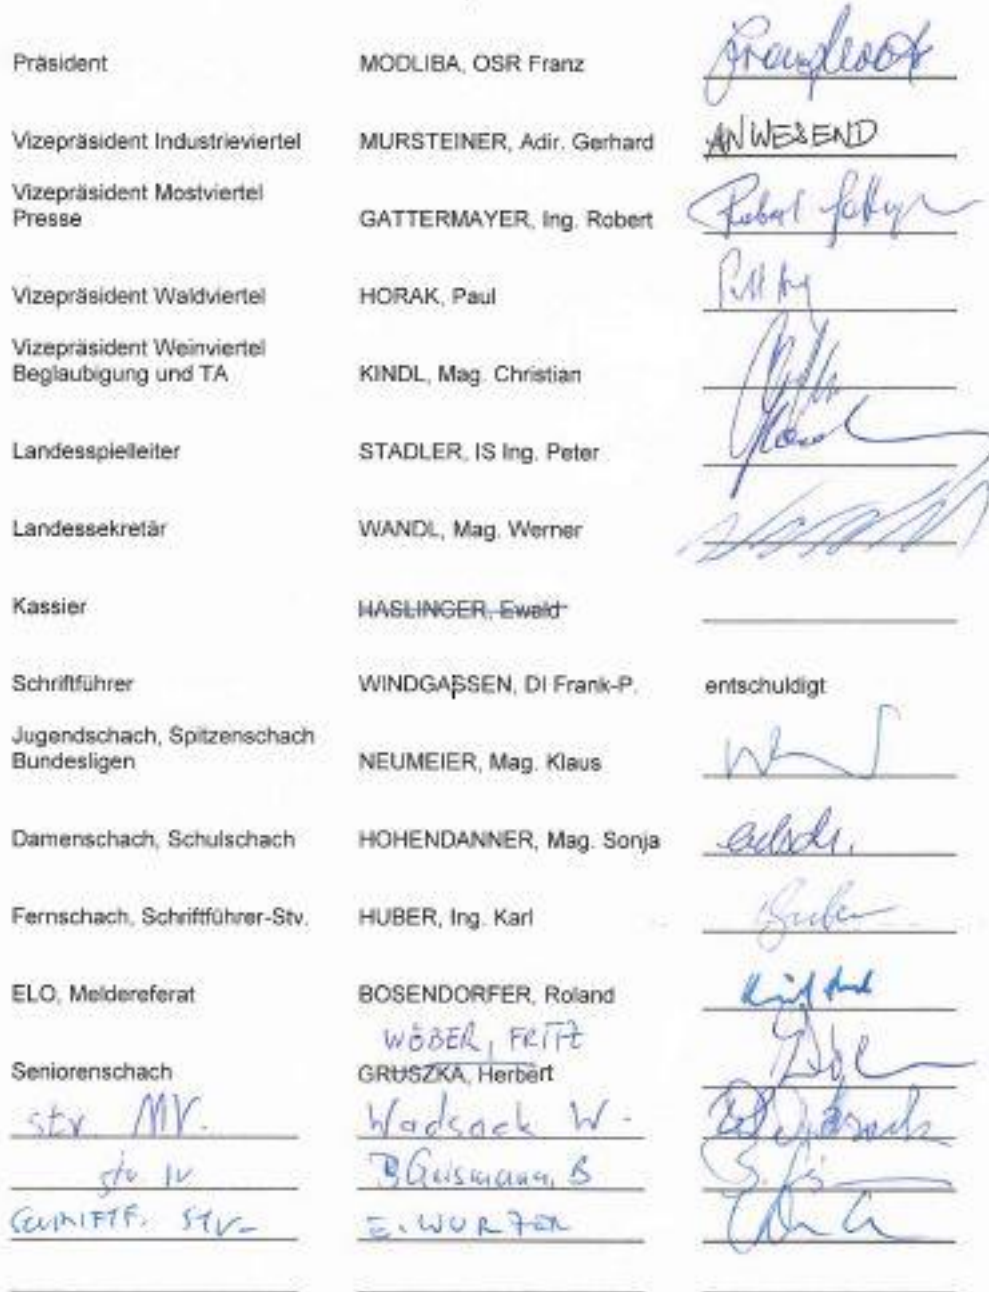 Präsident MODLIBA, OSR Franz
Vizepräsident Industrieviertel MURSTEINER, Adir. Gerhard ANWESEND
Vizepräsident Mostviertel
Presse GATTERMAYER, Ing. Robert Robert
Vizepräsident Waldviertel HORAK, Paul
Vizepräsident Weinviertel
Beglaubigung und TA KINDL, Mag. Christian
Landesspielleiter STADLER, IS Ing. Peter
Landessekretär WANDL, Mag. Werner
Kassier HASLINGER, Ewald
Schriftführer WINDGASSEN, DI Frank-P. entschuldigt
Jugendschach, Spitzenschach
Bundesligen NEUMEIER, Mag. Klaus
Damenschach, Schulschach HOHENDANNER, Mag. Sonja
Fernschach, Schriftführer-Stv. HUBER, Ing. Karl
ELO, Meldereferat BOSENDORFER, Roland
WÖBER, FRITZ
Seniorenschach GRUSZKA, Herbert
stv. MV. Wadsack W.
stv IV B
SCHRIFTF. STV- E. WURZER